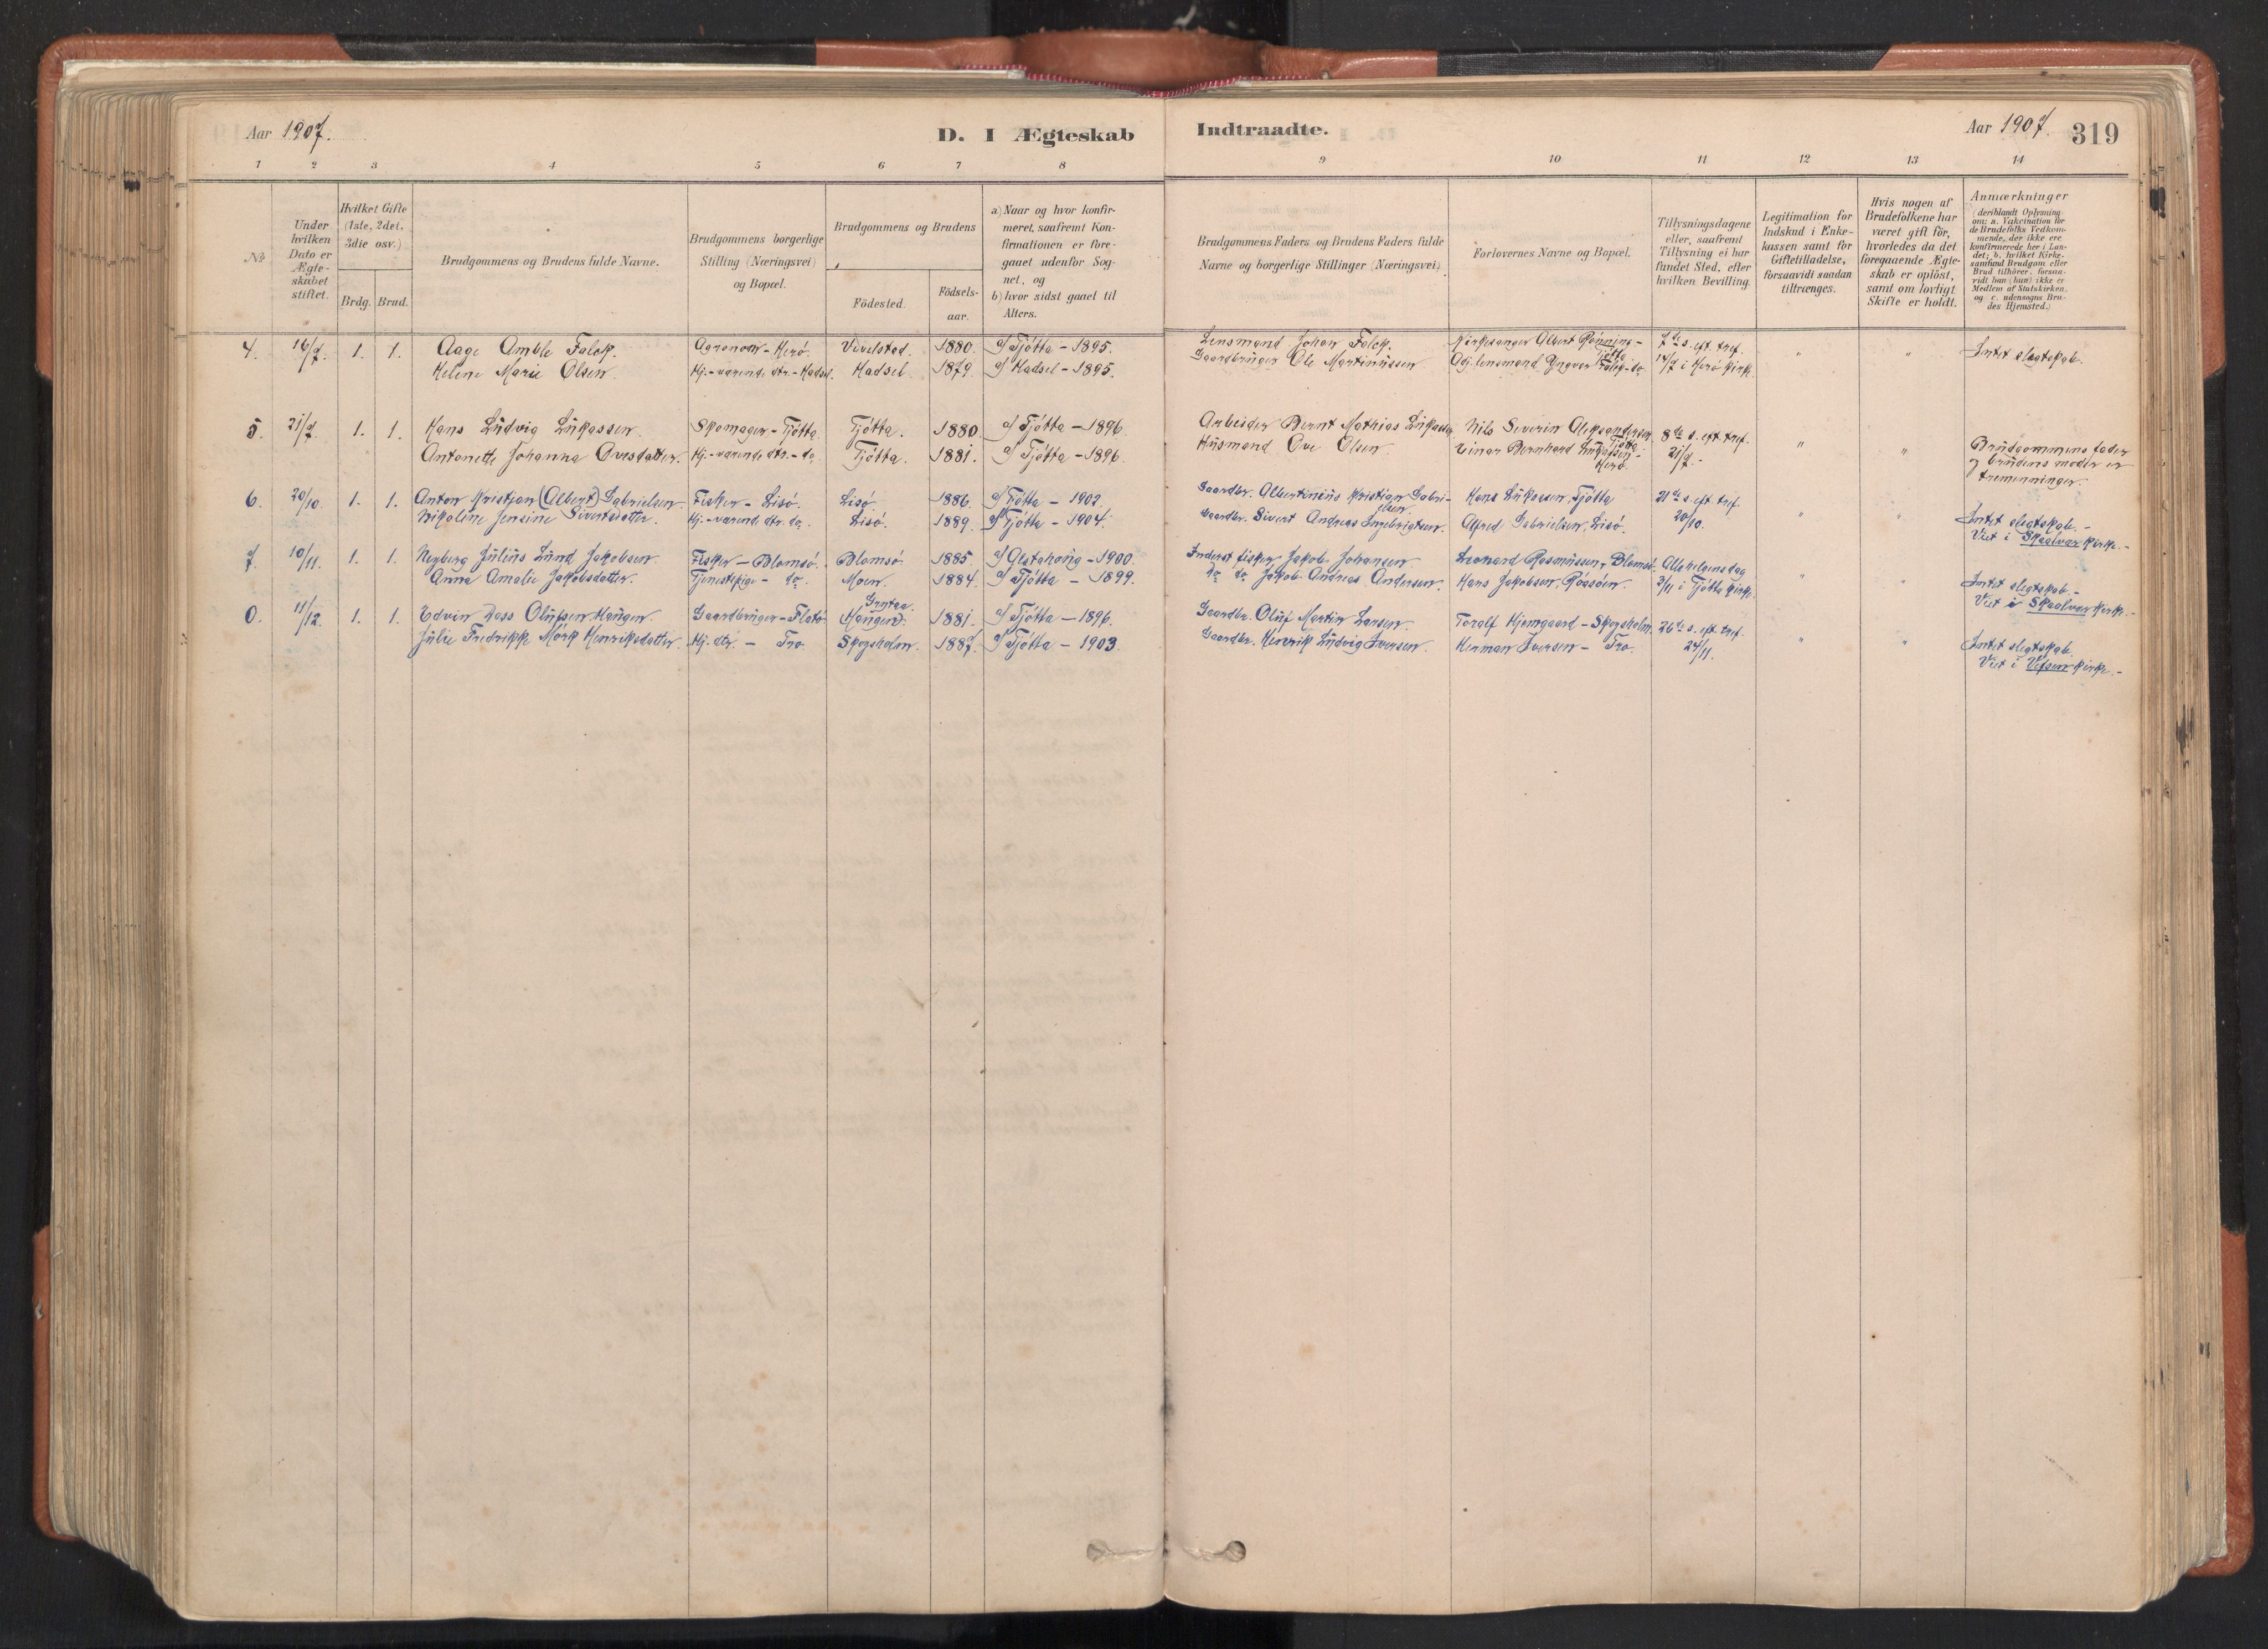 Aar 1907.
D. I Ægteskab
Indtraadte.
Aar 1907. 319
1 2 3 4 5 6 7 8 9 10 11 12 13 14
No
Under hvilken Dato er Ægteskabet stiftet.
Hvilket Gifte (1ste, 2det, 3die osv.)
Brdg. Brud.
Brudgommens og Brudens fulde Navne.
Brudgommens borgerlige Stilling (Næringsvei) og Bopæl.
Brudgommens og Brudens
Födested.
Födselsaar.
a) Naar og hvor konfirmeret, saafremt Konfirmationen er foregaaet udenfor Sognet, og
b) hvor sidst gaaet til Alters.
Brudgommens Faders og Brudens Faders fulde Navne og borgerlige Stillinger (Næringsvei).
Forlovernes Navne og Bopæl.
Tillysningsdagene eller, saafremt Tillysning ei har fundet Sted, efter hvilken Bevilling.
Legitimation for Indskud i Enkekassen samt for Giftetilladelse, forsaavidt saadan tiltrænges.
Hvis nogen af Brudefolkene har været gift för, hvorledes da det foregaaende Ægteskab er oplöst, samt om lovligt Skifte er holdt.
Anmærkninger
(deriblandt Oplysning om: a. Vakcination for de Brudefolks Vedkommende, der ikke ere konfirmerede her i Landet; b. hvilket Kirkesamfund Brudgom eller Brud tilhörer, forsaavidt han (hun) ikke er Medlem af Statskirken, og c. udensogns Brudes Hjemsted.)
4. 16/7. 1. 1. Aage Amble Falck. Agronom - Herö. Vevelstad. 1880. a) Tjötta - 1895. Lensmand Johan Falck. Kirkesanger Albert Rönning - Tjötta 7de s. eft. tref. " " Intet slegtskab.
Helene Marie Olsen. Hj.-værende dtr. - Hadsel. Hadsel. 1879. a) Hadsel - 1895. Gaardbruger Ole Martinussen Obj. lensmand Yngvar Falck - do 14/7 i Herö kirke.
5. 21/7. 1. 1. Hans Ludvig Lukassen. Skomager - Tjötta. Tjötta. 1880. a) Tjötta - 1896. Arbeider Bernt Mathias Lukassen Nils Severin Aleksandersen Tjötta 8de s. eft. tref. " "
Antonette Johanna Ovesdatter. Hj.-værende dtr. - do. Tjötta. 1881. a) Tjötta - 1896. Husmand Ove Olsen. Einar Bernhard Lukassen - Herö. 21/7. - Brudgommens fader og brudens moder er tremenninger.
6. 20/10. 1. 1. Anton Kristjan (Albert) Gabrielsen. Fisker - Lisö. Lisö. 1886. a) Tjötta - 1902. Gaardbr. Albertinius Kristian Gabrielsen. Hans Lukassen, Tjötta 21de s. eft. tref. " " Intet slegtskab. -
Nikoline Jensine Sivertsdatter. Hj.-værende dtr. do. Lisö. 1889. a) Tjötta - 1904. Gaardbr. Sivert Andreas Ingebrigtsen. Alfred Gabrielsen, Lisö. 20/10. Viet i Skaalvær kirke. -
7. 10/11. 1. 1. Nyberg Julius Lund Jakobsen. Fisker - Blomsö. Blomsö. 1885 a) Alstahaug - 1900. Inderst fisker Jakob Johansen Leonard Rasmussen, Blomsö. Allehelgensdag " " Intet slegtskab. -
Anna Amalie Jakobsdatter. Tjenestepige - do. Moen. 1884. a) Tjötta - 1899. do do Jakob Andreas Andersen. Hans Jakobsen, Rössöen. 3/11 i Tjötta kirke. Viet i Skaalvær kirke. -
0. 11/12. 1. 1. Edvin Dass Olufsen Haugen. Gaardbruger - Flatö. Haugen. 1881. a) Tjötta - 1896. Gaardbr. Oluf Martin Larsen. Toralf Hjemgaard - Skogsholm. 26de s. eft. tref. " " Intet slegtskab.
Julie Fredrikke Mörk Henriksdatter. Hj. dtr. - Tro. Skogsholm. 1887. a) Tjötta - 1903. Gaardbr. Henrik Ludvig Iversen. Herman Iversen - Tro. 24/11. Viet i Vefsen kirke. -